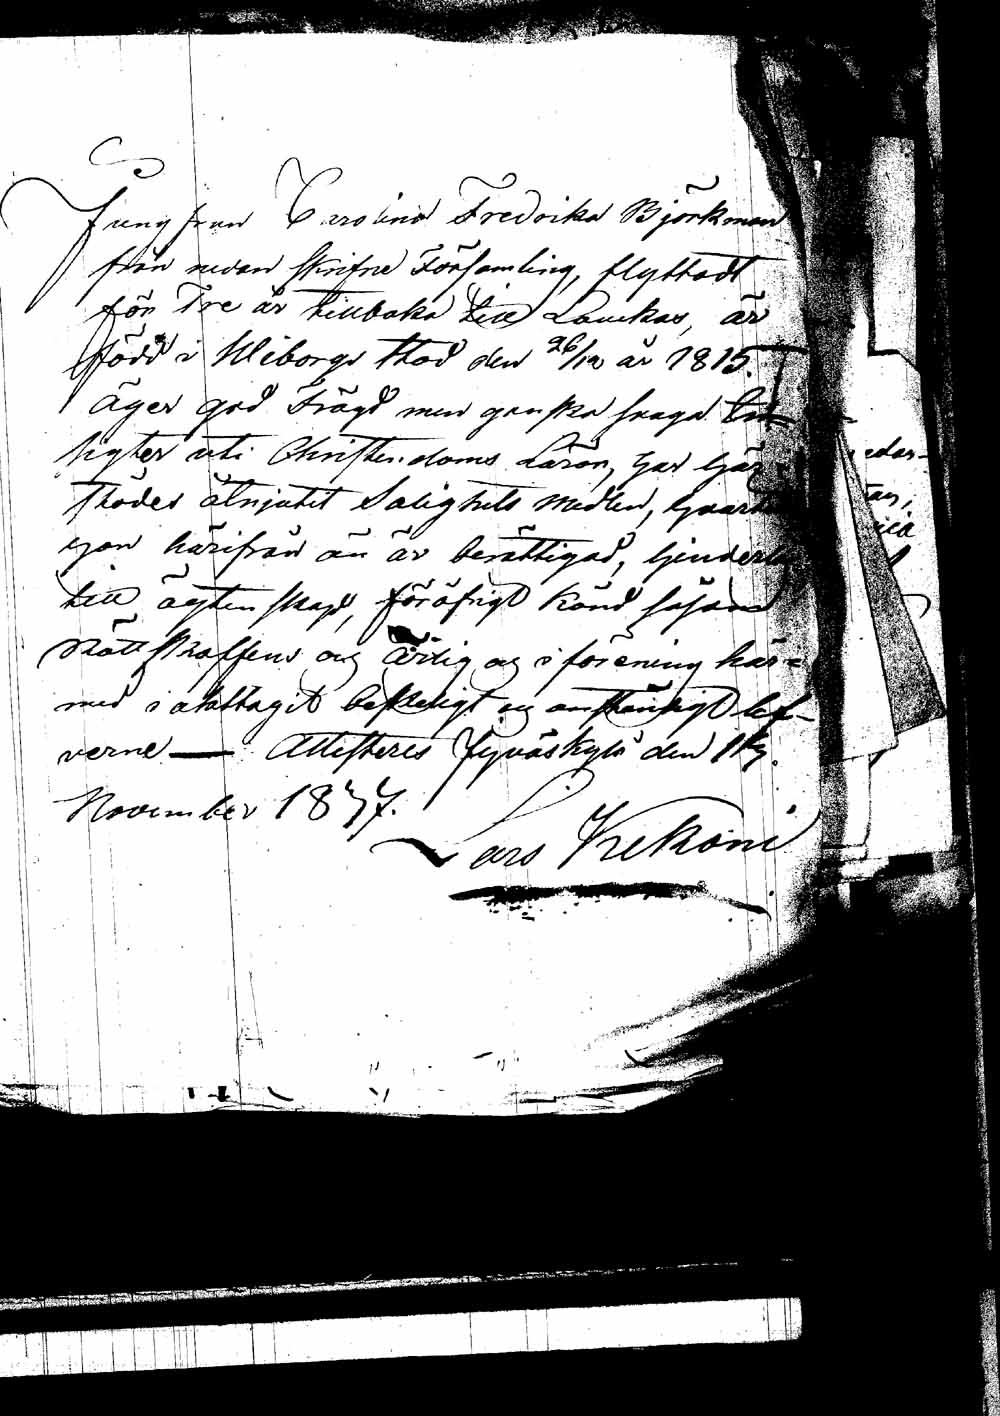 Jungfrun Carolina Fredrika Björkman
från nedan skrifne Församling, flyttadt
för Tre år tillbaka till Laukas, är
född i Wiborgs Stad den 26/12 år 1815.
äger god Frägd men ganska svaga In-
sigter uti Christendoms Läran, har här-
städes åtnjutit Salighets medlen,
hon härifrån än är berättigad, hinderlös
till ägtenskap, föröfrigt känd såsom
Rättskaffens och Ärlig och i förening här=
med iakttagit beskedligt och anständigt lef-
verne — Attesteras Jyväskylä den
November 1837.
Lars Kekoni